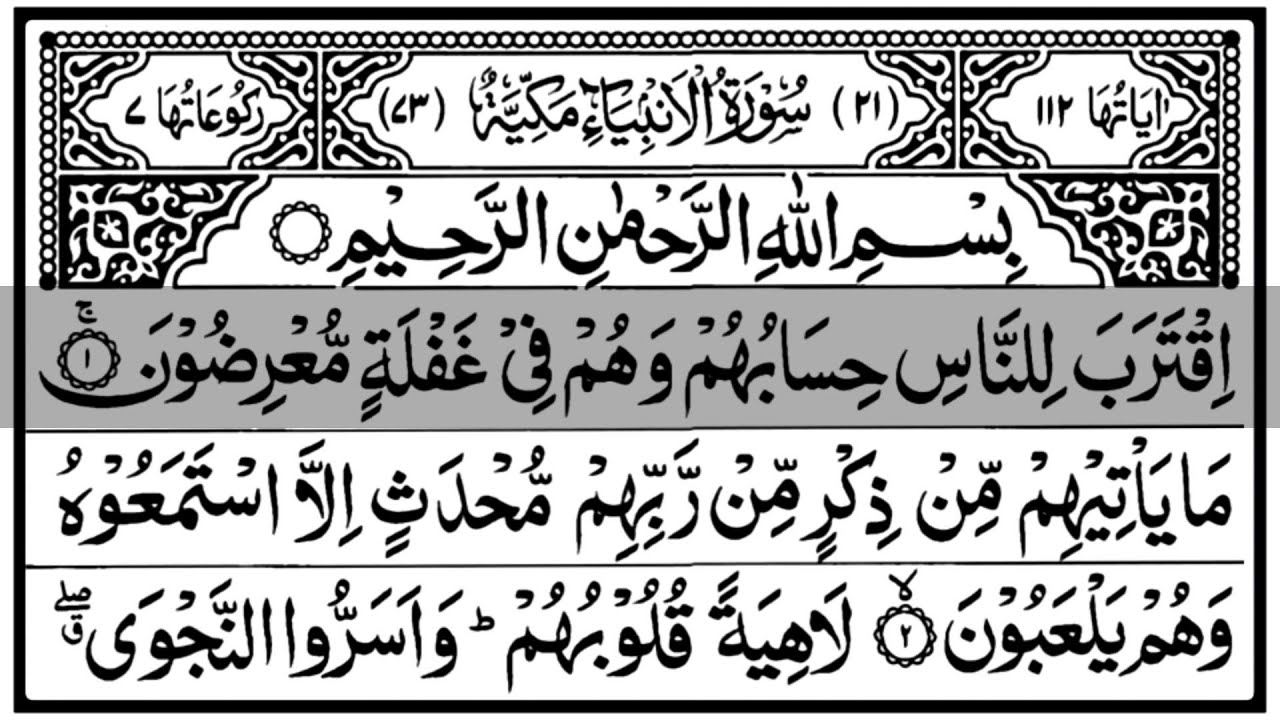 اٰيَاتُهَا ١١٢ (٢١) سُوْرَةُ الْاَنْۢبِيَآءِ مَكِّيَّةٌ (٧٣) رُكُوْعَاتُهَا ٧
بِسْمِ اللّٰهِ الرَّحْمٰنِ الرَّحِيْمِ
اِقْتَرَبَ لِلنَّاسِ حِسَابُهُمْ وَهُمْ فِيْ غَفْلَةٍ مُّعْرِضُوْنَ ۚ ١
مَا يَاْتِيْهِمْ مِّنْ ذِكْرٍ مِّنْ رَّبِّهِمْ مُّحْدَثٍ اِلَّا اسْتَمَعُوْهُ
وَهُمْ يَلْعَبُوْنَ ۙ ٢ لَاهِيَةً قُلُوْبُهُمْ ؕ وَاَسَرُّوا النَّجْوَى ۖ ق